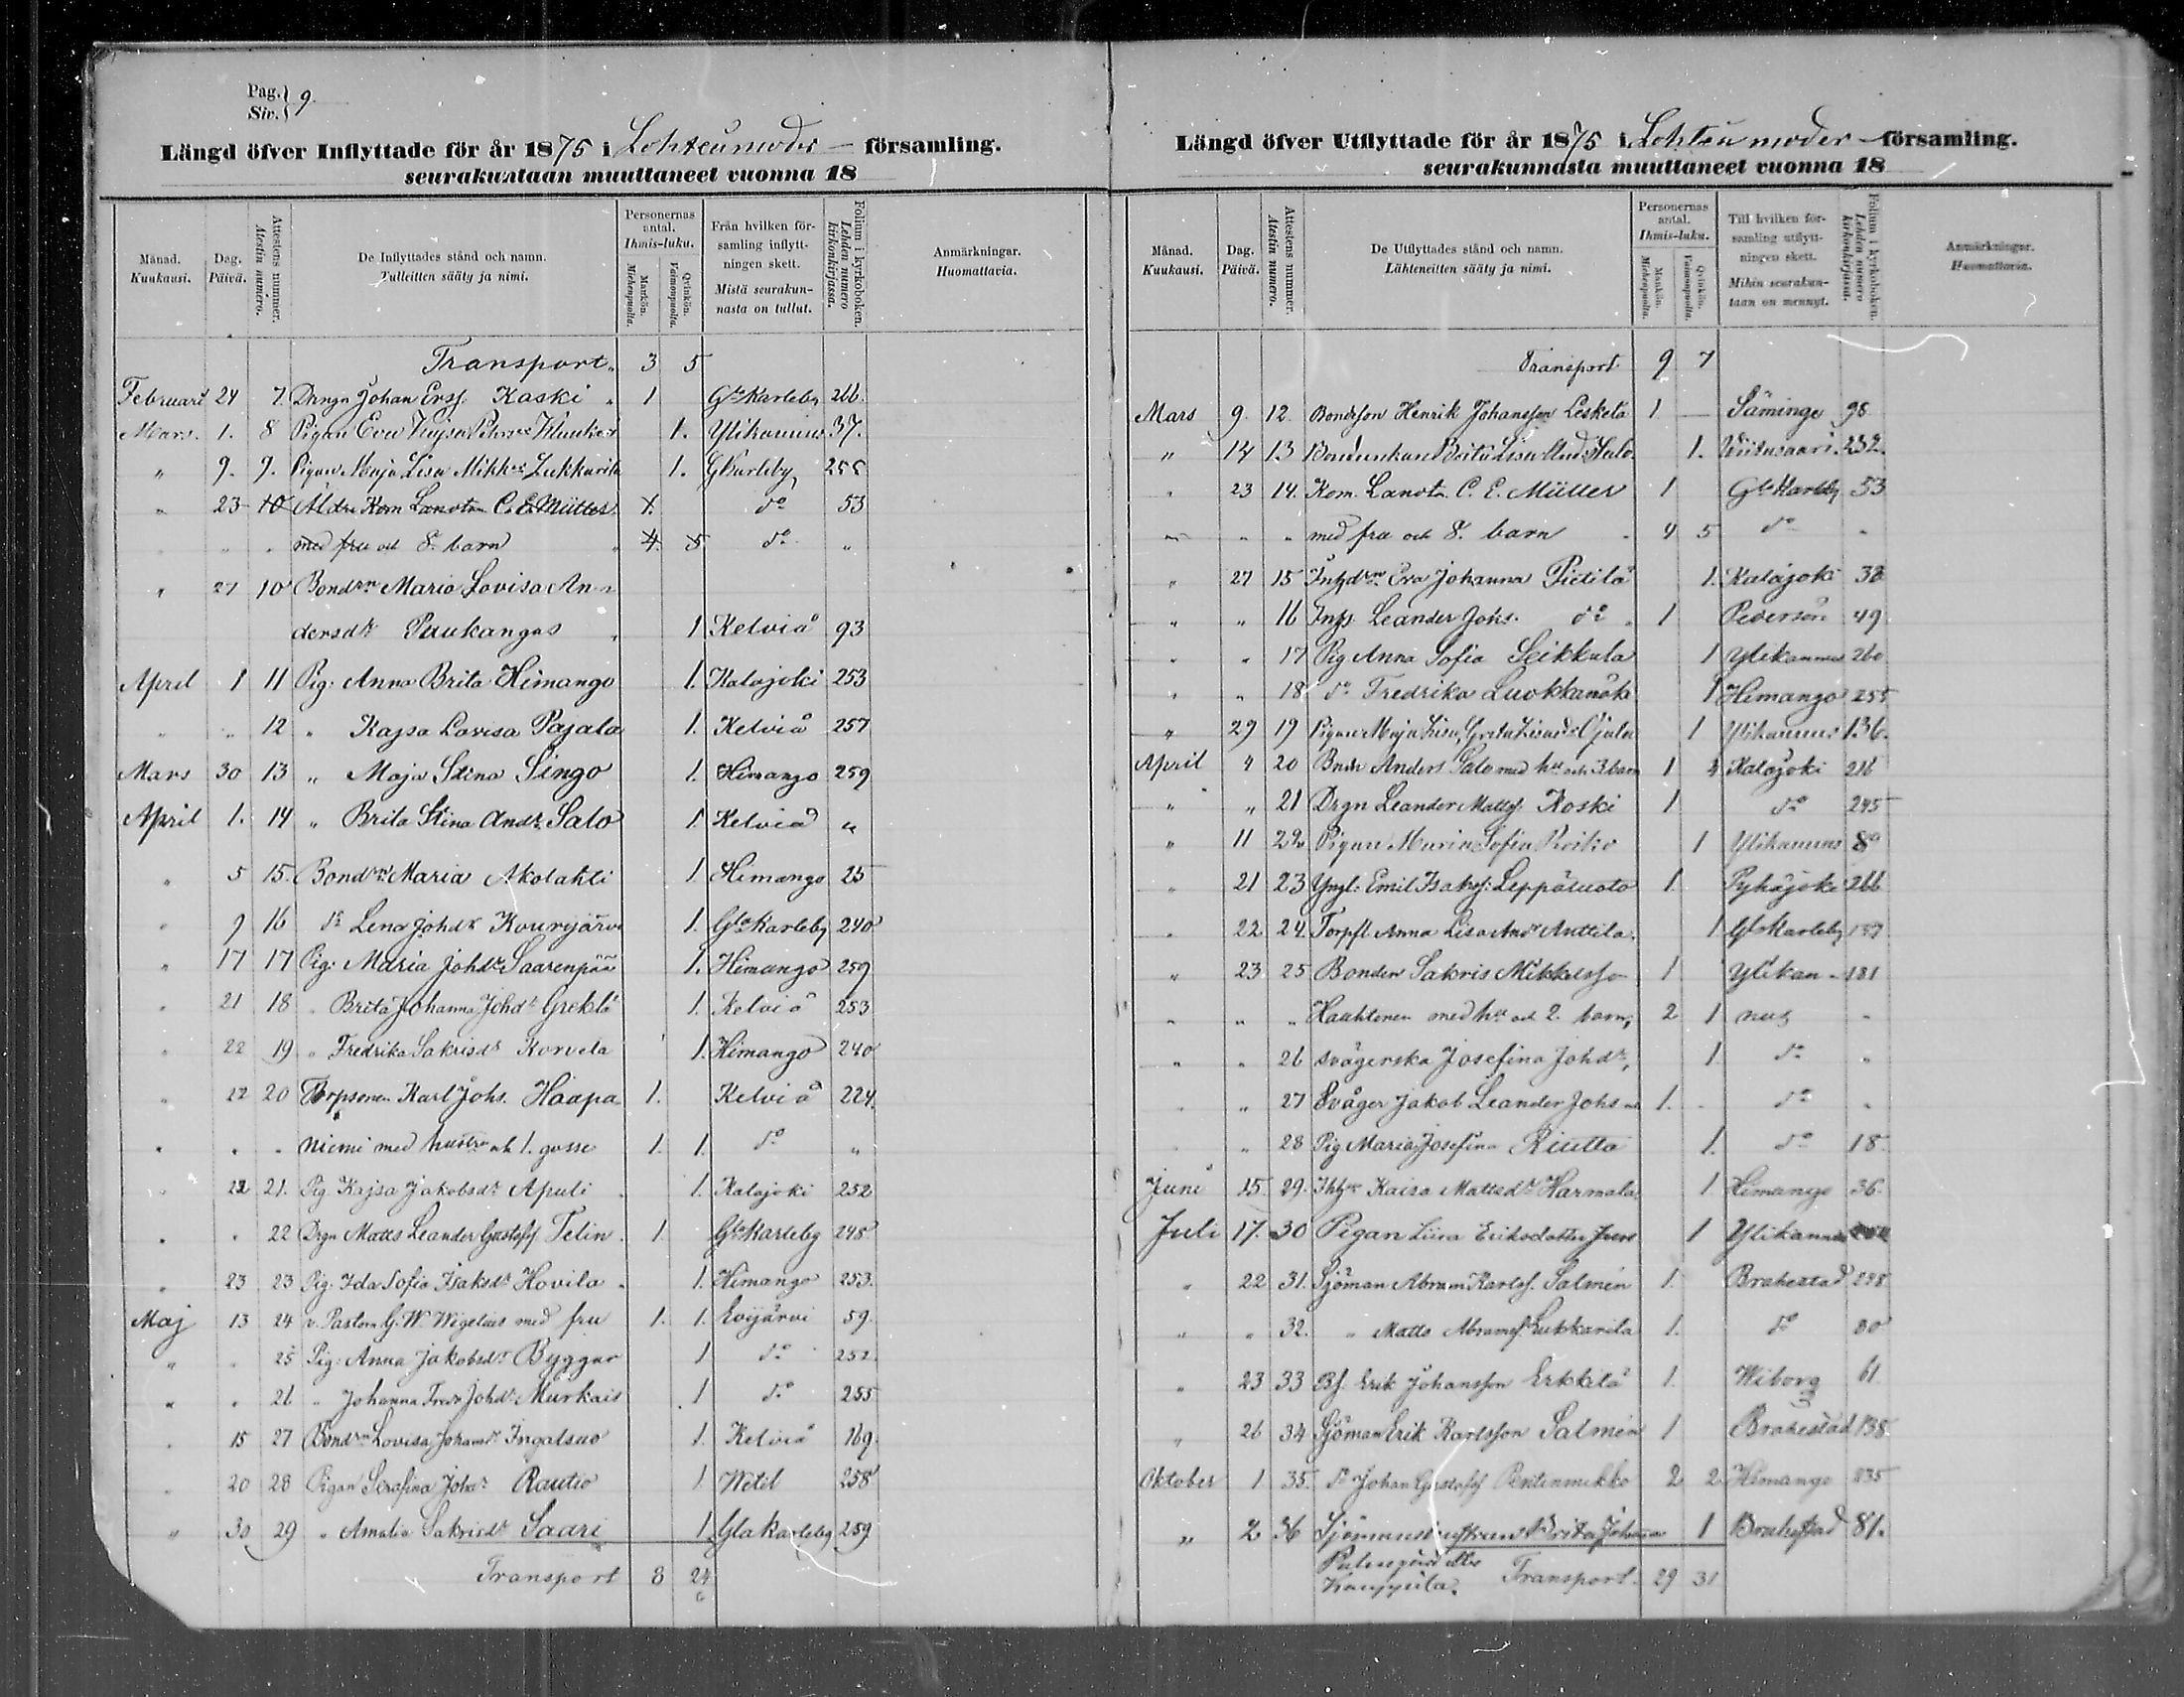 Pag. } 9.
Siv. }
Längd öfver Inflyttade för år 1875 i Lohteå moder- församling.
seurakuntaan muuttaneet vuonna 18
Månad. Kuukausi. Dag. Päivä. Attestens nummer. Atestin numero. De Inflyttades stånd och namn. Tulleitten sääty ja nimi. Personernas antal. Ihmis-luku. Mankön. Miehenpuolta. Qvinkön. Vaimonpuolta. Från hvilken församling inflyttningen skett. Mistä seurakunnasta on tullut. Folium i kyrkoboken. Lehden numero kirkonkirjassa. Anmärkningar. Huomattavia.
Transport. 3 5
Februari 24 7. Drngn Johan Ersf. Kaski 1 Gla Karleby 266.
Mars. 1. 8 Pigan Eva Kajsa 1. Ylikannus 37.
" 9. 9. Pigan Maja Lisa Mikk dr Lukkarila 1. G Karleby, 255
" 23 10 Äldre Kom Landtm C. E. Müller 1. do 53
" " med fru och 8. barn 4. 5 do "
" 27 10 Bondrn Maria Lovisa An-
dersdr Paukangas 1 Kelviå 93
April 1 11 Pig. Anna Brita Himango 1. Kalajoki 253
" " 12 " Kajsa Lovisa Pajala 1. Kelviå 257
Mars 30 13 " Maja Stina Singo 1. Himango 259
April 1. 14 " Brita Stina Andr. Salo 1. Kelviå "
" 5 15. Bondrn Maria Akolahti 1. Himango 25
" 9 16 do Lena Johdr Kourijärvi 1. Gla Karleby 240
" 17 17 Pig. Maria Johdr Saarenpää 1. Himango 259
" 21 18 " Brita Johanna Johdr Greklä 1. Kelviå 253
" 22 19 " Fredrika Sakrisdr Korvela 1. Himango 240
" 22 20 Torpsonen Karl Johs. Haapa 1. Kelviå 224.
" " " niemi med hustru och 1. gosse 1. 1. do "
" 22 21. Pig Kajsa Jakobsdr Apuli 1. Kalajoki 252
" " 22 Drgn Matts Leander Gustafsf Telin 1. Gla Karleby 248
" 23 23 Pig. Ida Sofia Isaksdr Hovila 1. Himango 253.
Maj 13 24 v. Pastorn G. W. Wigelius med fru 1. 1. Evijärvi 59.
" " 25 Pig. Anna Jakobsdr Byggar 1 do 252.
" " 26 " Johanna Fredr Johdr Murkais 1 do 255
" 15 27 Bondrn Lovisa Johansdr Ingalsuo 1. Kelviå 169.
" 20 28 Pigan Serafina Johdr Rautio 1 Wetil 258
" 30 29 " Amalia Sakrisdr Saari 1. Gla Karleby 259
Transport 8 24
Längd öfver Utflyttade för år 1875 i Lohteå moder- församling.
seurakunnasta muuttaneet vuonna 18
Månad. Kuukausi. Dag. Päivä. Attestens nummer. Atestin numero. De Utflyttades stånd och namn. Lähteneitten sääty ja nimi. Personernas antal. Ihmis-luku. Mankön. Miehenpuolta. Qvinkön. Vaimonpuolta. Till hvilken församling utflyttningen skett. Mihin seurakuntaan on mennyt. Folium i kyrkoboken. Lehden numero kirkonkirjassa. Anmärkningar. Huomattavia.
Transport 9 7
Mars 9. 12. Bondeson Henrik Johansson Leskelä 1 Säminge 98
" 14 13 Bondenkan Brita Lisa Andr Salo 1. Viitasaari. 232.
" 23 14. Kom. Landtm. C. E. Müller 1 Gla Karleby 53
" " " med fru och 8. barn 4 5 do "
" 27 15 Inhdrn Eva Johanna Pietilä 1. Kalajoki 38
" " 16 Inhs. Leander Johs. do 1 Pedersöre 49
" " 17 Pig Anna Sofia Seikkula 1 Ylikannus 260
" " 18 do Fredrika Luokkanok 1 Himango 255
" 29 19 Pigan Maja Lisa, Greta Lisasdr Ojala 1 Ylikannus 136.
April 4 20 Bndn Anders Salo med hu och 3 barn 1 4 Kalajoki 216
" " 21 Drgn Leander Mattsf. Koski 1 do 245
" 11 22 Pigan Maria Sofia Roiko 1 Ylikannus 80
" 21 23 Yngl. Emil Isaksf. Leppäluoto 1. Pyhäjoki 266
" 22 24. Torpfl Anna Lisa Andr Anttila. 1 Gl Karleby 137
" 23 25 Bonden Sakris Mikkelsso- 1 Ylikan- 181
" " " Hauhtonen med hu och 2. barn, 2 1 nus "
" " 26 svägerska Josefina Johdr, 1. do "
" " 27 Svåger Jakob Leander Johs 1. do "
" " 28 Pig Maria Josefina Riutta 1. do 18.
Juni 15. 29. Kaisa Mattsdr Harmala 1 Himango 36.
Juli 17. 30 Pigan Liisa Eriksdotter Juus 1 Ylikannus
" 22 31. Sjöman Abram Karlsf. Salmén 1. Brahestad 238
" " 32. " Matts Abramsf Lukkarila 1. do 80
" 23 33 Bf. Erik Johansson Erkkilä 1. Wiborg 61
" 26 34 Sjöman Erik Karlsson Salmén 1 Brahestad 138.
Oktober 1 35. do Johan Gustafsf Pentinmikko 2 2 Himango 235
" 2 36 Sjömansenkfrun Brita Johanna 1 Brahestad 81.
Kangutta. Transport. 29 31